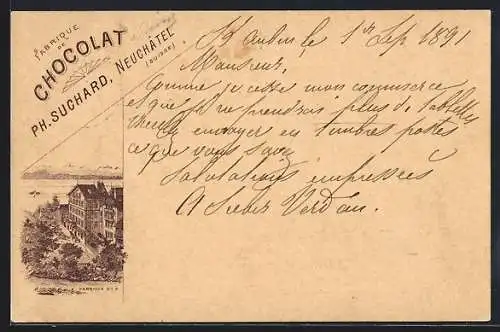 FABRIQUE
DE
CHOCOLAT
PH. SUCHARD, NEUCHÂTEL
(SUISSE)
St Aubin le 1er Sep 1891
Monsieur,
Comme je cesse mon commerce
et que je ne prendrai plus de tablettes
envoyer en timbres postes
ce que vous savez
Salutations empressées
A Verdan.